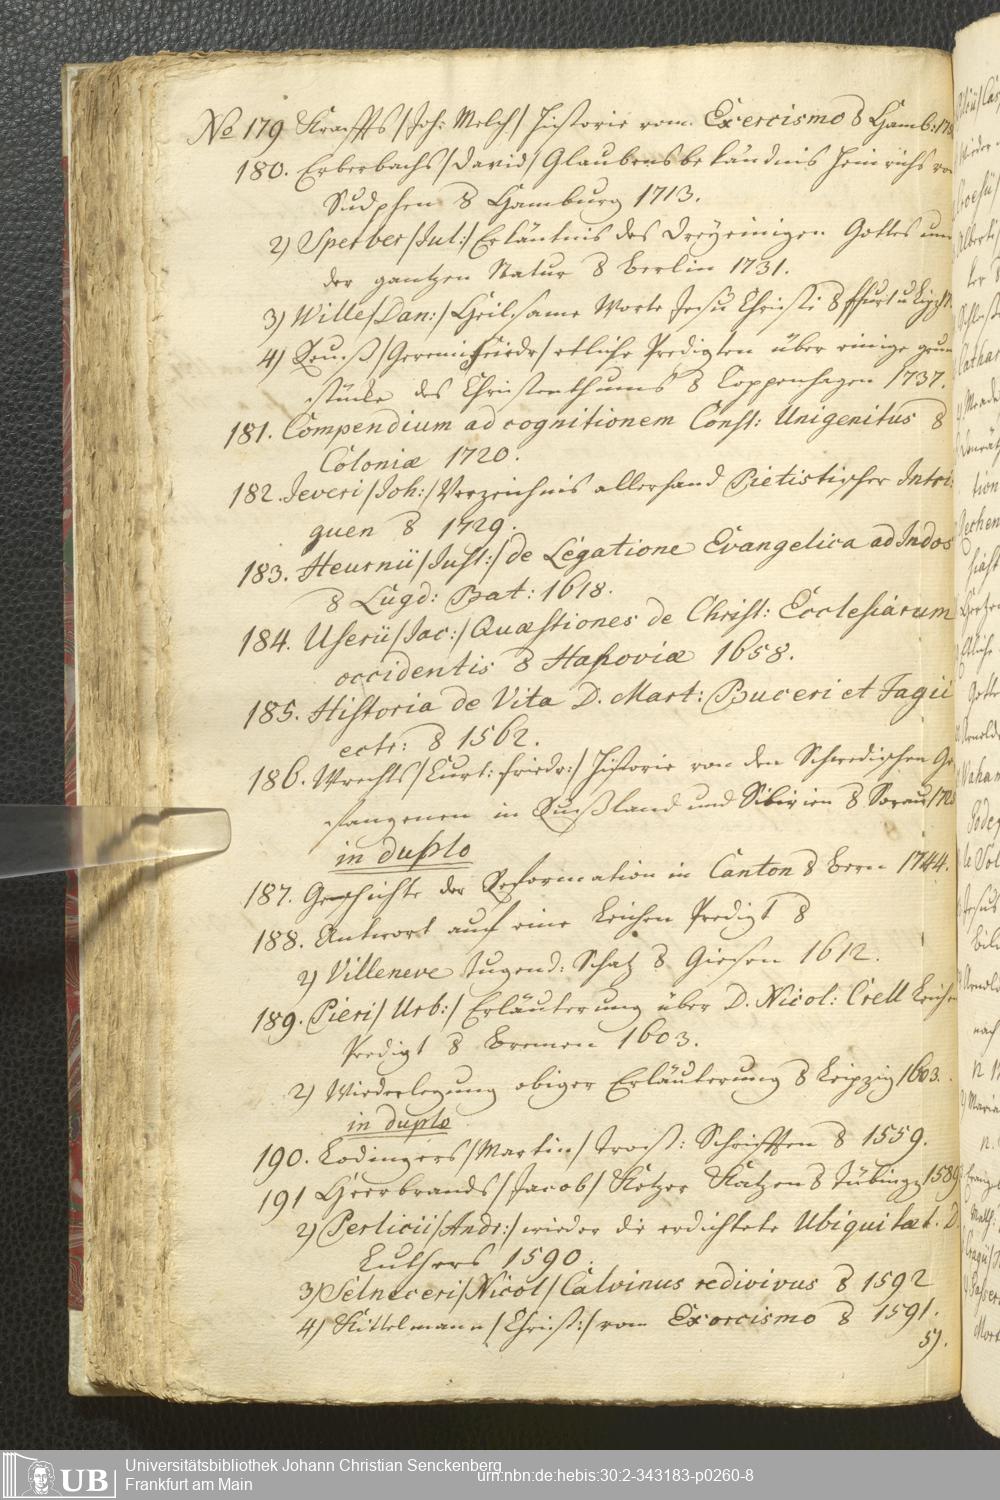 No 179 Kraffts /Joh: Melch/ Historie vom Exercismo 8 Hamb:
180. Erberbachs /David/ Glaubensbekändnis Heinrichs von
Sudphen 8 Hamburg 1713.
2) Sperber /Jul:/ Erkäntnis des Dreyeinigen Gottes und
der gantzen Natur 8 Berlin 1731.
3) Wille /Dan:/ Heilsame Worte Jesu Christi 8 ffurt u Leipz
4) Reuß /Jeremi friedr/ etliche Predigten über einige grund
stücke des Christenthums 8 Coppenhagen 1737.
181. Compendium ad cognitionem Const: Unigenitus 8
Coloniæ 1720.
182. Severi /Joh:/ Verzeichnis allerhand Pietistischer Intri
guen 8 1729.
183. Heurnii /Just:/ de Legatione Evangelica ad Indos
8 Lugd: Bat: 1618.
184. Userii /Jac:/ Quæstiones de Christ: Ecclesiarum
occidentis 8 Hanoviæ 1658.
185. Historia de Vita D. Mart: Buceri et Fagii
ectr: 8 1562.
186. Wrechts /Curt: friedr:/ Historie von den Schwedischen Ge
fangenen in Rußland und Sibirien 8 Sorau
in duplo
187. Geschichte der Reformation in Canton 8 Bern 1744.
188. Antwort auf eine Leichen Predigt 8
2) Villeneve Tugend: Schatz 8 Giesen 1612.
189. Pieri /Urb:/ Erläuterung über D. Nicol: Crell Leichen
Predigt 8 Bremen 1603.
2) Wiederlegung obiger Erläuterung 8 Leipzig 1603.
in duplo
190. Lodingers /Martin/ Trost: Schrifften 8 1559.
191 Heerbrands /Jacob/ Ketzer Katzen 8 Tübing 1589.
2) Perlicii /Andr:/ wieder die erdichtete Ubiquitæt. D.
Luthers 1590.
3) Selneceri /Nicol/ Calvinus redivivus 8 1592
4) Kittelmann /Christ:/ vom Exorcismo 8 1591.
5).
Universitätsbibliothek Johann Christian Senckenberg
Frankfurt am Main
UB
urn:nbn:de:hebis:30:2-343183-p0260-8